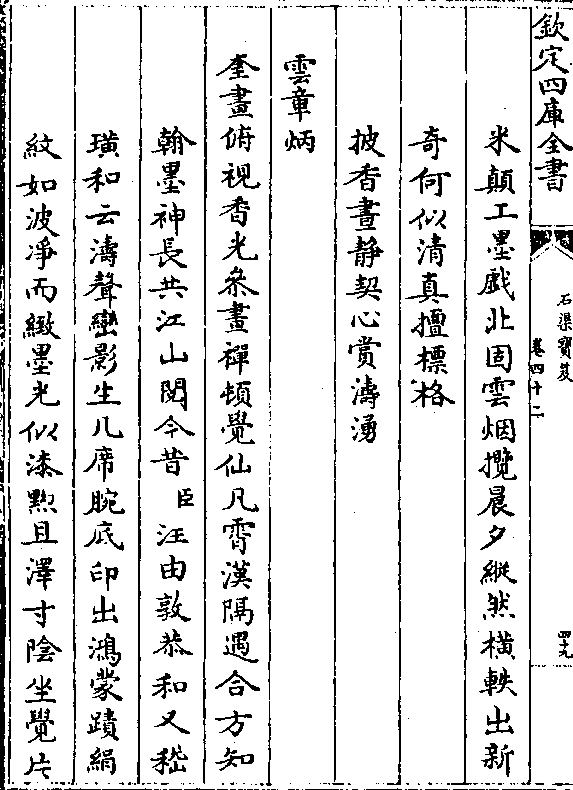 欽定四庫全書
石渠寶笈
卷四十二
四十九
米顛工墨戲北固雲烟攬晨夕縱然橫軼出新
奇何似清真擅標格
披香晝静契心賞濤湧
雲章炳
奎畫俯視香光叅畫禪頓覺仙凡霄漢隔遇合方知
翰墨神長共江山閱今昔 臣汪由敦恭和又嵇
璜和云濤聲巒影生几席腕底印出鴻蒙蹟絹
紋如波凈而緻墨光似漆黝且澤寸陰坐覺片